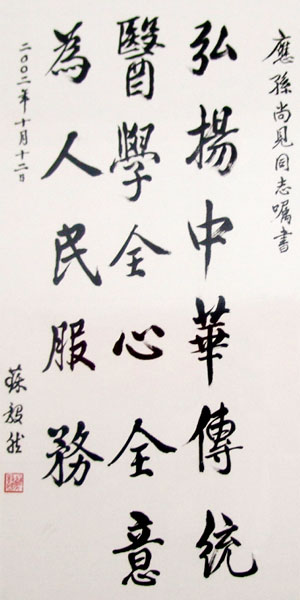 應孫尚見同志囑書
弘揚中華傳統
醫學全心全意
為人民服務
二〇〇二年十月十二日
蘇毅然